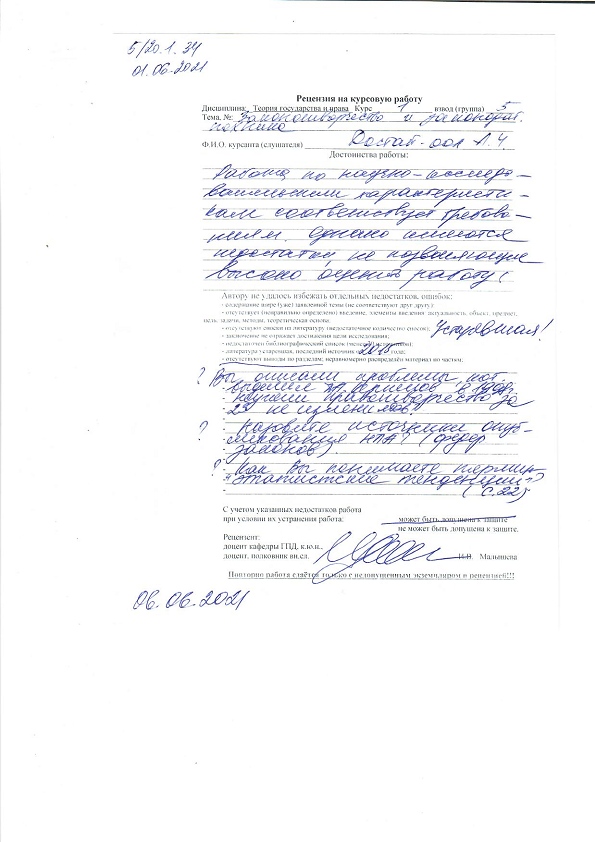 5/20.1.34
01.06.2021
Рецензия на курсовую работу
Дисциплина: Теория государства и права Курс 1 взвод (группа) 5
Тема, №: Законотворчество и законодат.
техника
Ф.И.О. курсанта (слушателя) Достай-оол А.Ч
Достоинства работы:
Работа по научно-исследо-
вательским характеристи-
кам соответствует требова-
ниям. Однако имеются
недостатки, не позволяющие
высоко оценить работу.
Автору не удалось избежать отдельных недостатков, ошибок:
- содержание шире (уже) заявленной темы (не соответствуют друг другу);
- отсутствует (неправильно определено) введение, элементы введения: актуальность, объект, предмет,
цель, задачи, методы, теоретическая основа;
- отсутствуют сноски на литературу (недостаточное количество сносок); Устаревшая!
- заключение не отражает достижения цели исследования;
- недостаточен библиографический список (менее источников);
- литература устаревшая, последний источник 2018 года;
- отсутствуют выводы по разделам; неравномерно распределён материал по частям;
? Вы описали проблемы
выделил в
правотворчество за
не изменилось?
? Назовите источники опуб-
ликования НПА? (федер
законов).
? Как Вы понимаете термин
"этатистские тенденции"?
(С.22)
С учетом указанных недостатков работа
при условии их устранения работа: может быть допущена к защите
не может быть допущена к защите.
Рецензент:
доцент кафедры ГПД, к.ю.н.,
доцент, полковник вн.сл. И.В. Малышева
Повторно работа сдаётся только с недопущенным экземпляром и рецензией!!!
06.06.2021